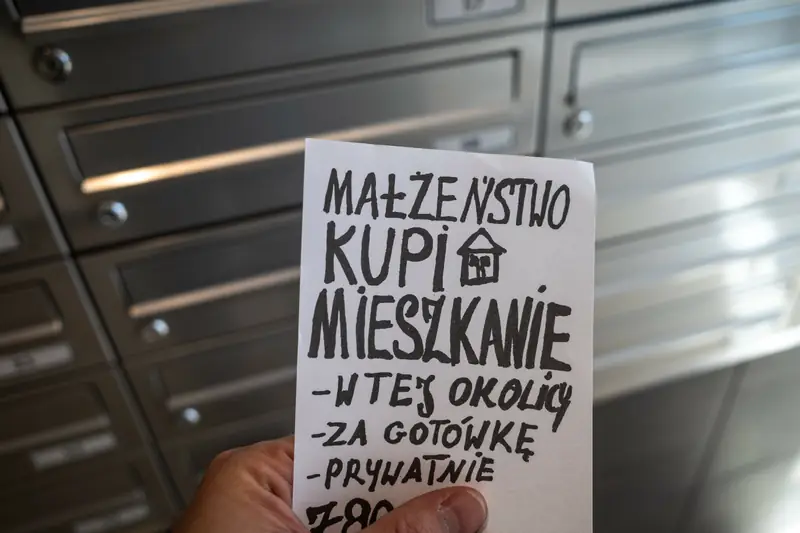 MAŁŻEŃSTWO
KUPI
MIESZKANIE
-W TEJ OKOLICY
-ZA GOTÓWKĘ
-PRYWATNIE
780